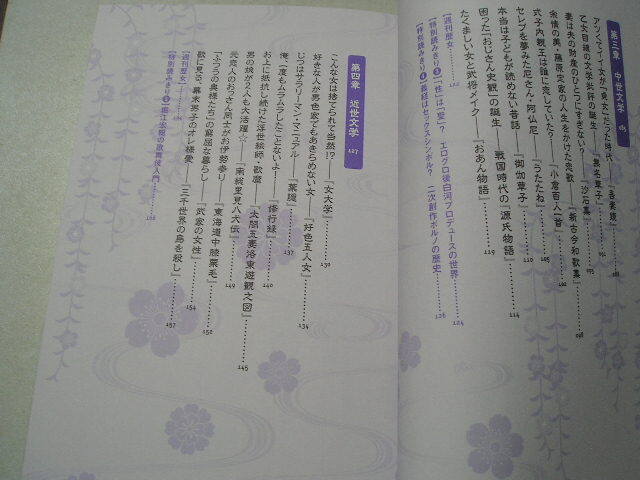 第三章 中世文学
アツくてイイ女が〝勇女〟だった時代 『吾妻鏡』
乙女目線の文学批評の誕生 『無名草子』
妻は夫の財産のひとつにすぎない? 『沙石集』
余情の美・藤原定家の人生をかけた恋歌 『新古今和歌集』 098
式子内親王は誰に恋していた? 『小倉百人一首』 102
セレブを夢みた尼さん・阿仏尼 『うたたね』 105
本当は子どもが読めない昔話 『御伽草子』 110
困った「おじさん史観」の誕生 戦国時代の『源氏物語』 114
たくましい女と武将メイク 『おあん物語』 119
【週刊歴女】 122
【特別読みきり❸】「性」は「聖」? エログロ後白河プロデュースの世界 124
【特別読みきり❹】義経はセックスシンボル? 二次創作ポルノの歴史 126
第四章 近世文学 127
こんな女は捨てられて当然!? 『女大学』 130
好きな人が男色家でもあきらめない女 『好色五人女』 134
じつはサラリーマン・マニュアル 『葉隠』 137
俺、一度もムラムラしたことないよ 『修行録』 140
お上に抵抗し続けた浮世絵師・歌麿 『太閤五妻洛東遊観之図』 145
男の娘が2人も大活躍☆ 『南総里見八犬伝』 149
元恋人のおっさん同士がお伊勢参り 『東海道中膝栗毛』 150
「ふつうの奥様たち」の窮屈な暮らし 『武家の女性』 154
歌に見る、幕末男子のオレ様愛 『三千世界の鳥を殺し』 157
【週刊歴女】
【特別読みきり❺】堀江宏樹の歌舞伎入門